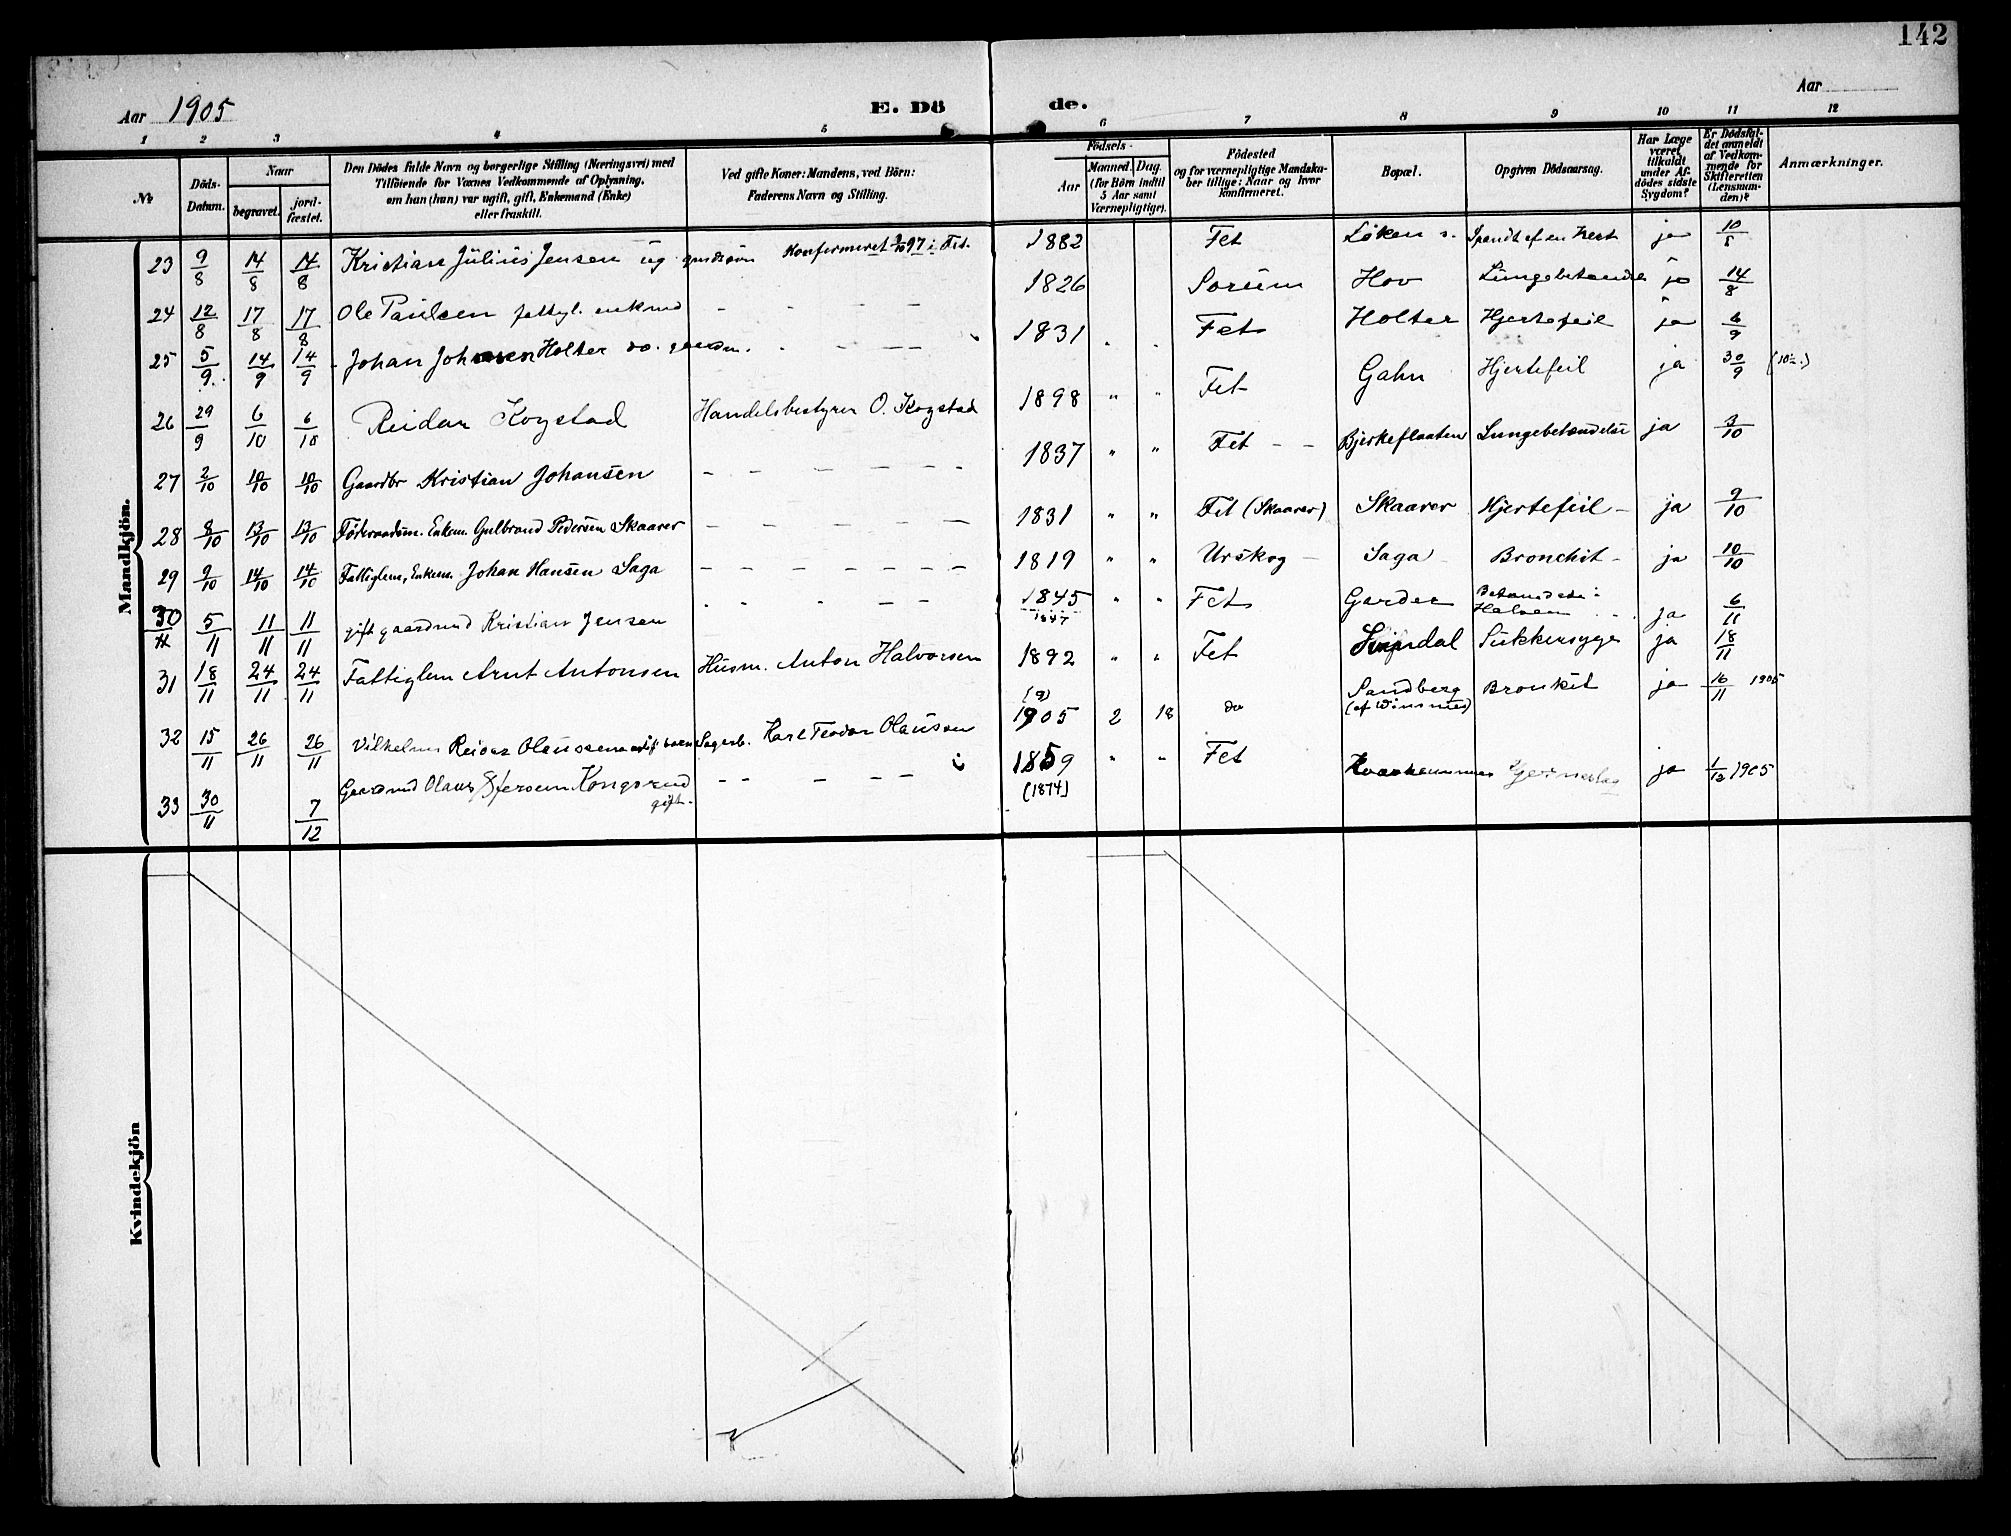 142
Aar 1905
E. Dö de.
Aar
1 2 3 4 5 6 7 8 9 10 11 12
No
Döds-Datum.
Naar
begravet.
jord-fæstet.
Den Dödes fulde Navn og borgerlige Stilling (Næringsvei) med
Tilföiende for Voxnes Vedkommende af Oplysning,
om han (hun) var ugift, gift, Enkemand (Enke)
eller fraskilt.
Ved gifte Koner: Mandens, ved Börn:
Faderens Navn og Stilling.
Födsels-
Aar
Maaned. Dag.
(for Börn indtil
5 Aar samt
Værnepligtige).
Födested
og for værnepligtige Mandska-
ber tillige: Naar og hvor
konfirmeret.
Bopæl.
Opgiven Dödsaarsag.
Har Læge
været
tilkaldt
under Af-
dödes sidste
Sygdom?
Er Dödsfal-
det anmeldt
af Vedkom-
mende for
Skifteretten
(Lensman-
den)?
Anmærkninger.
Mandkjön.
23 9/8 14/8 14/8 Kristian Julius Jensen ug. Konfermeret 3/10 97 i Fet. 1882 Fet Löken Spændt af en Hest ja 10/8
24 12/8 17/8 17/8 Ole Paulsen fattigl. enkmd - - - - 1826 Sorum Hov Lungebetændelse ja 14/8
25 5/9 14/9 14/9 Johan Johansen Holter do. gaardm. - - - - 1831 Fet Holter Hjertefeil ja 6/9
26 29/9 6/10 6/10 Reidar Kogstad Handelsbestyrer O. Kogstad 1898 " " Fet Gahn Hjertefeil ja 30/9
27 2/10 10/10 10/10 Gaardbr Kristian Johansen - - - - - - 1837 " " Fet - - Bjerkeflaaten Lungebetændelse ja 3/10
28 8/10 13/10 13/10 Föderaadsm. Enkem. Gulbrand Pedersen Skaarer - - - - - 1831 " " Fet (Skaarer) Skaarer Hjertefeil - ja 9/10
29 9/10 14/10 14/10 Fattiglem, Enkem. Johan Hansen Saga - - - - - - - 1819 " " Urskog - Saga Bronchit - ja 10/10
30 5/11 11/11 11/11 gift gaardmd Kristian Jensen - - - - - 1845 1847 " " Fet Garder Betændelse i Halsen ja 6/11
31 18/11 24/11 24/11 Fattiglem Arnt Antonsen Husm. Anton Halvorsen 1892 " " Fet Svindal Sukkersyge ja 18/11
32 15/11 26/11 26/11 Vilhelm Reidar Olaussen Sagarb. Karl Teodor Olausen 1905 2 18 do Sandberg Bronkit ja 16/11 1905
33 30/11 7/12 Gaardmd Olaus Kongsrud gift. - - - - - 1859 (1874) " " Fet ja 1/12 1905
Kvindekjön